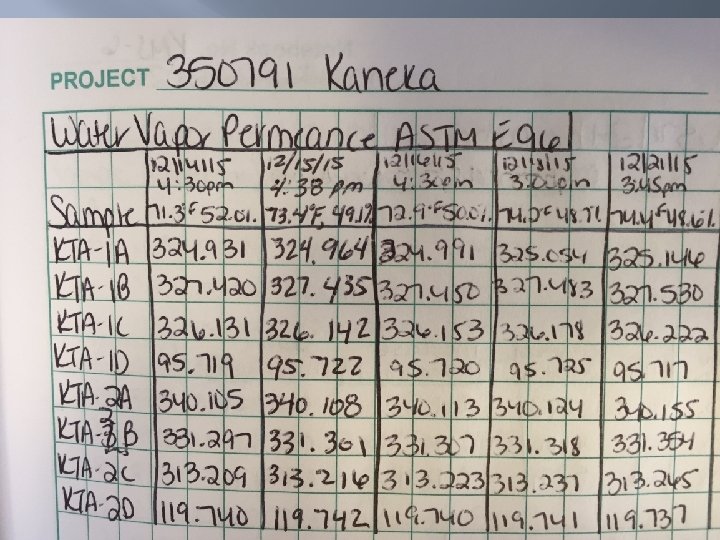 PROJECT 350791 Kaneka
Water Vapor Permeance ASTM E96
12/14/15 12/15/15 12/16/15 12/18/15 12/21/15
4:30pm 4:38 pm 4:30pm 3:00pm 3:45pm
Sample 71.3°F 52.0%. 73.4°F, 49.1% 72.9°F 50.0%. 74.2°F 48.7% 74.4°F 48.6%
KTA-1A 324.931 324.964 324.991 325.054 325.146
KTA-1B 327.420 327.435 327.450 327.483 327.530
KTA-1C 326.131 326.142 326.153 326.178 326.222
KTA-1D 95.719 95.722 95.720 95.725 95.717
KTA-2A 340.105 340.108 340.113 340.124 340.155
KTA-2B 331.297 331.301 331.307 331.318 331.354
KTA-2C 313.209 313.216 313.223 313.237 313.265
KTA-2D 119.740 119.742 119.740 119.741 119.737